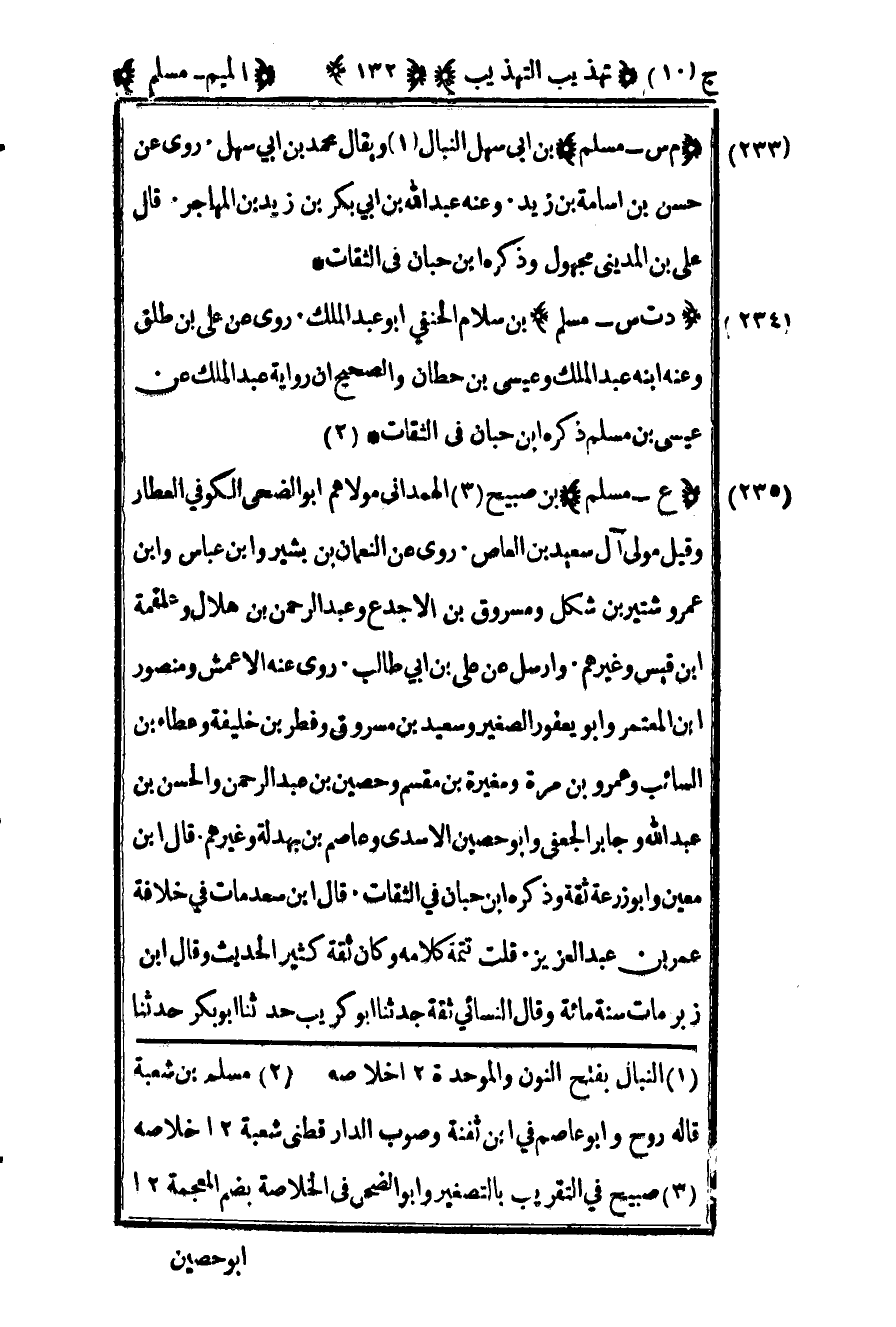 ج (١٠) ﴿ تهذيب التهذيب ﴾ ﴿ ١٣٢ ﴾ ﴿ الميم ـ مسلم ﴾
(٢٣٣) ﴿ م س ـ مسلم ﴾ بن ابى سهل النبال (١) ويقال محمد بن ابي سهل · روى عن
حسن بن اسامة بن زيد · وعنه عبدالله بن ابي بكر بن زيد بن المهاجر · قال
على بن المديني مجهول وذكره ابن حبان فى الثقات*
(٢٣٤) ﴿ د ت س ـ مسلم ﴾ بن سلام الحنفي ابو عبد الملك · روى عن على بن طلق
وعنه ابنه عبد الملك وعيسى بن حطان والصحيح ان رواية عبد الملك عن
عيسى بن مسلم ذكره ابن حبان فى الثقات* (٢)
(٢٣٥) ﴿ ع ـ مسلم ﴾ بن صبيح (٣) الهمداني مولاهم ابو الضحى الكوفي العطار
وقيل مولى آل سعيد بن العاص · روى عن النعمان بن بشير وابن عباس وابن
عمرو شتير بن شكل ومسروق بن الاجدع وعبد الرحمن بن هلال وعلقمة
ابن قيس وغيرهم · وارسل عن على بن ابي طالب · روى عنه الاعمش ومنصور
ابن المعتمر وابو يعفور الصغير وسعيد بن مسروق وفطر بن خليفة وعطاء بن
السائب وعمرو بن مرة ومغيرة بن مقسم وحصين بن عبد الرحمن والحسن بن
عبدالله وجابر الجعفي وابو حصين الاسدى وعاصم بن بهدلة وغيرهم · قال ابن
معين وابو زرعة ثقة وذكره ابن حبان في الثقات · قال ابن سعد مات في خلافة
عمر بن عبد العزيز · قلت تتمة كلامه وكان ثقة كثير الحديث وقال ابن
زبر مات سنة مائة وقال النسائي ثقة حدثنا ابو كريب حدثنا ابو بكر حدثنا
(١) النبال بفتح النون والموحدة ١٢ خلاصه (٢) مسلم بن شعبة
قاله روح وابو عاصم في ابن ثفنة وصوب الدار قطنى شعبة ١٢ خلاصه
(٣) صبيح في التقريب بالتصغير وابو الضحى فى الخلاصة بضم المعجمة ١٢
ابو حصين